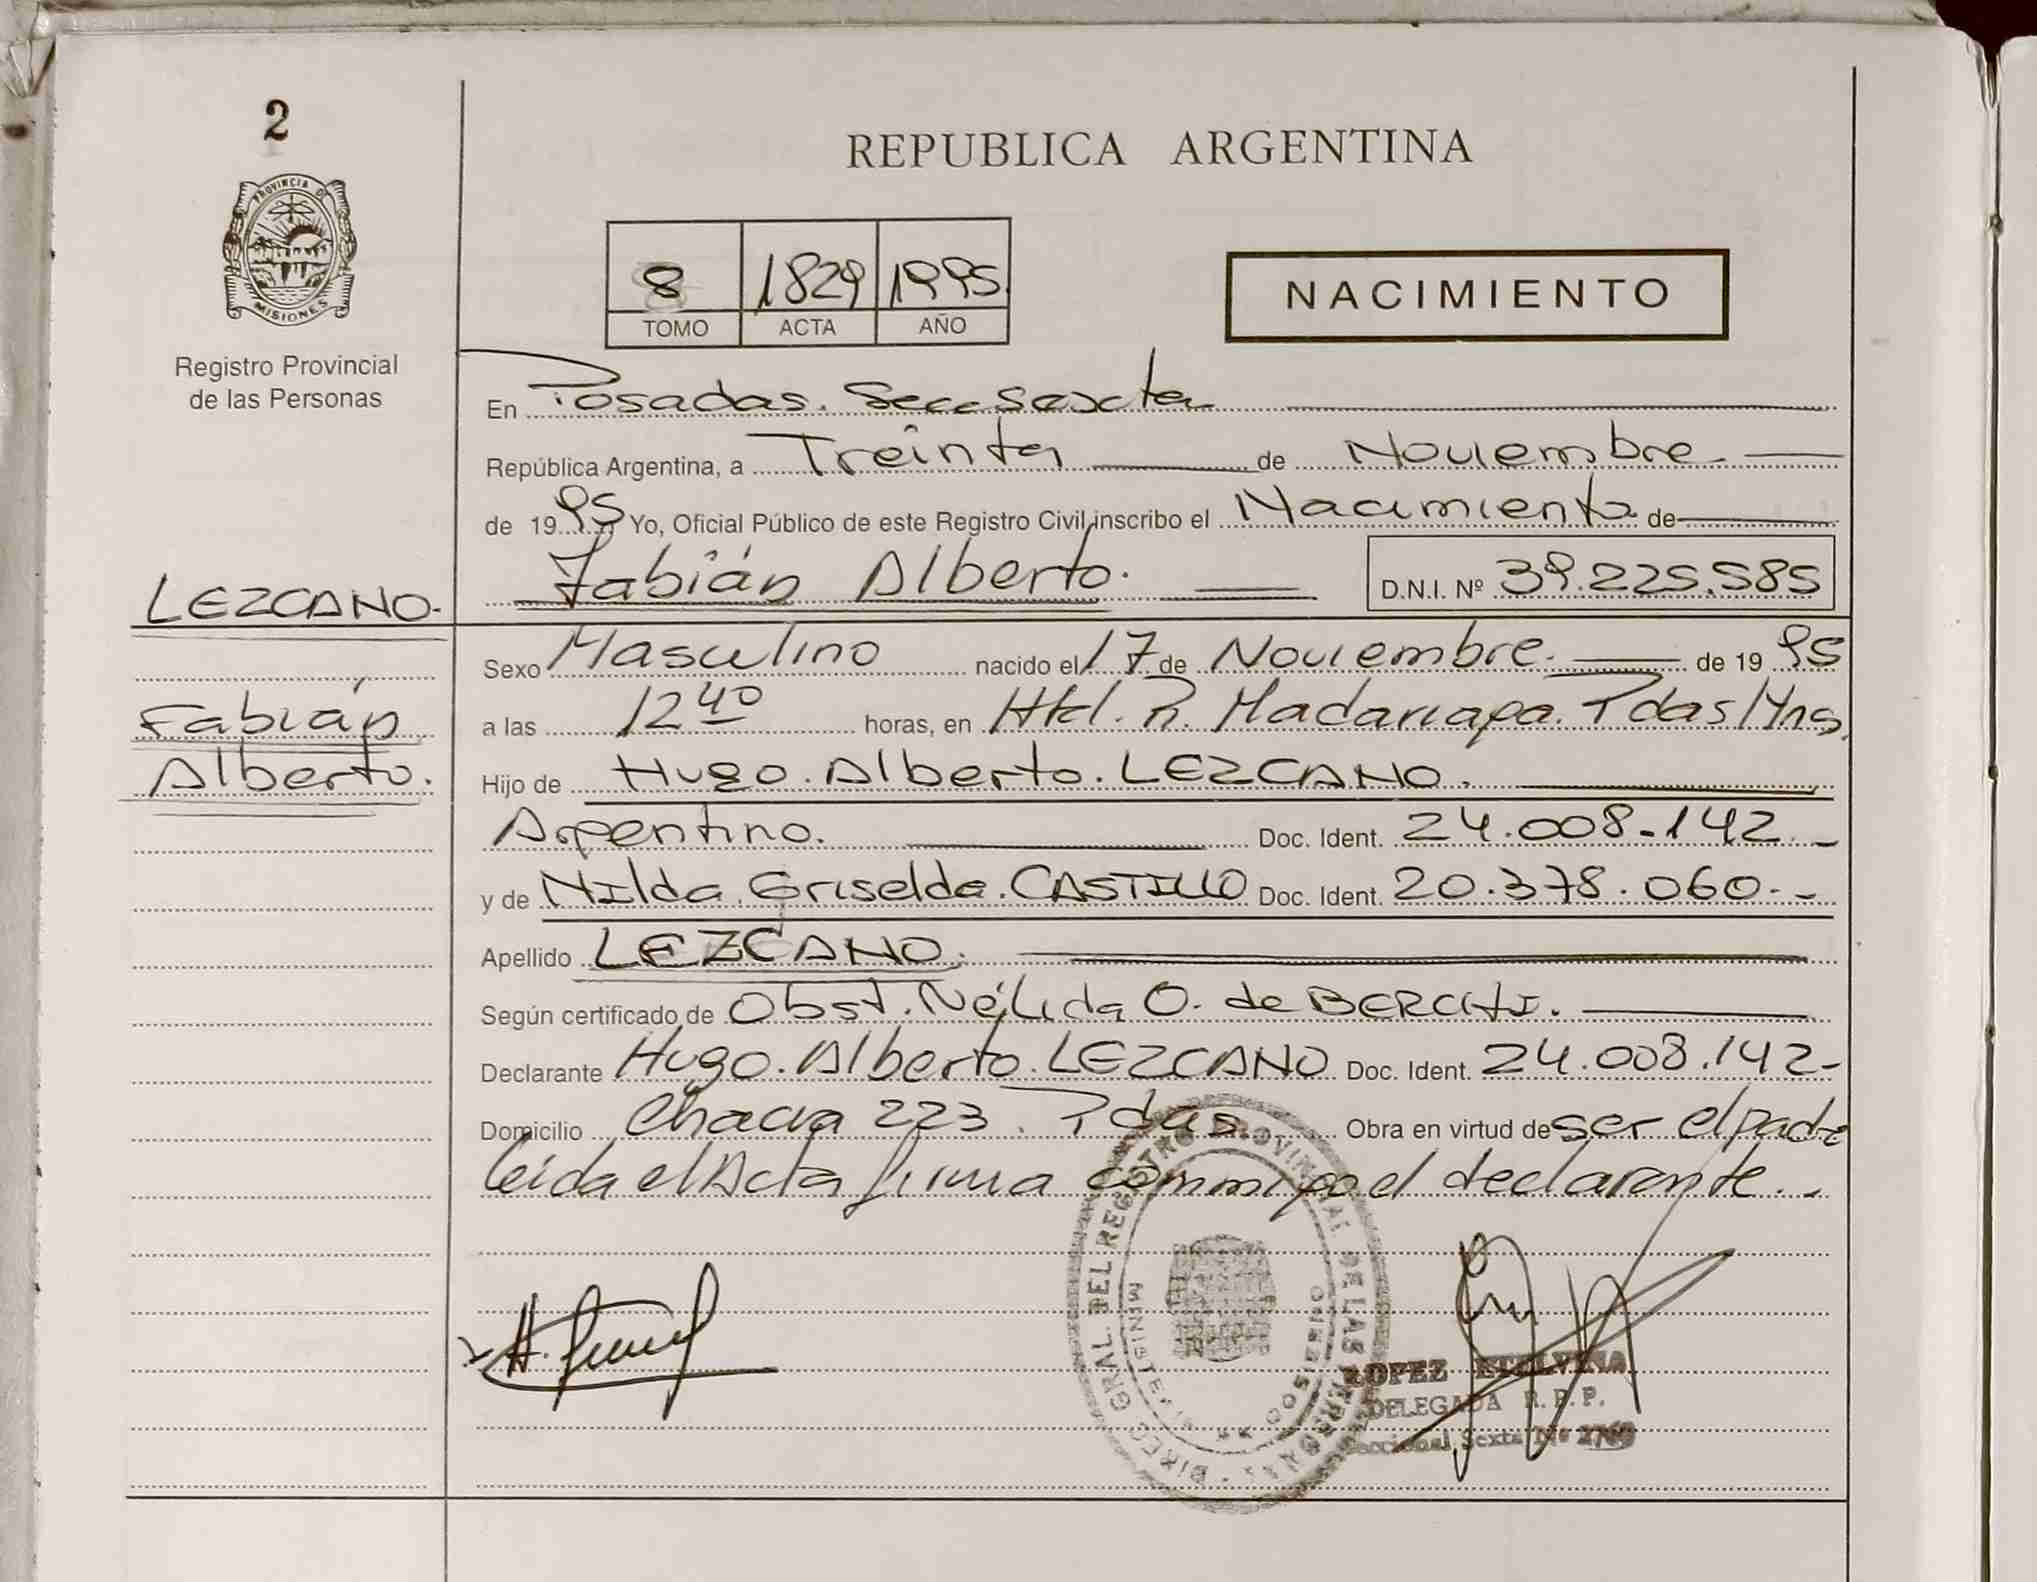 2
PROVINCIA DE
MISIONES
Registro Provincial
de las Personas
LEZCANO.
Fabián
Alberto.
REPUBLICA ARGENTINA
8 1829 1995
TOMO ACTA AÑO
NACIMIENTO
En Posadas. Secc Sexta
República Argentina, a Treinta de Noviembre
de 1995 Yo, Oficial Público de este Registro Civil inscribo el Nacimiento de
Fabián Alberto. D.N.I. Nº 39.225.585
Sexo Masculino nacido el 17 de Noviembre. de 1995
a las 12 40 horas, en Htal. R. Madariaga. Pdas Mns.
Hijo de Hugo. Alberto. LEZCANO.
Argentino. Doc. Ident. 24.008.142.-
y de Nilda Griselda. CASTILLO Doc. Ident. 20.378.060.-
Apellido LEZCANO.
Según certificado de Obst. Nélida O. de BERCHI.
Declarante Hugo. Alberto. LEZCANO Doc. Ident. 24.008.142-
Domicilio Chacra 223. Pdas. Obra en virtud de ser el padre
leida el Acta firma conmigo el declarante..
DIREC. GRAL. DEL REGISTRO PROVINCIAL DE LAS PERSONAS
LOPEZ ETELVINA
DELEGADA R. P. P.
Seccional Sexta Nº